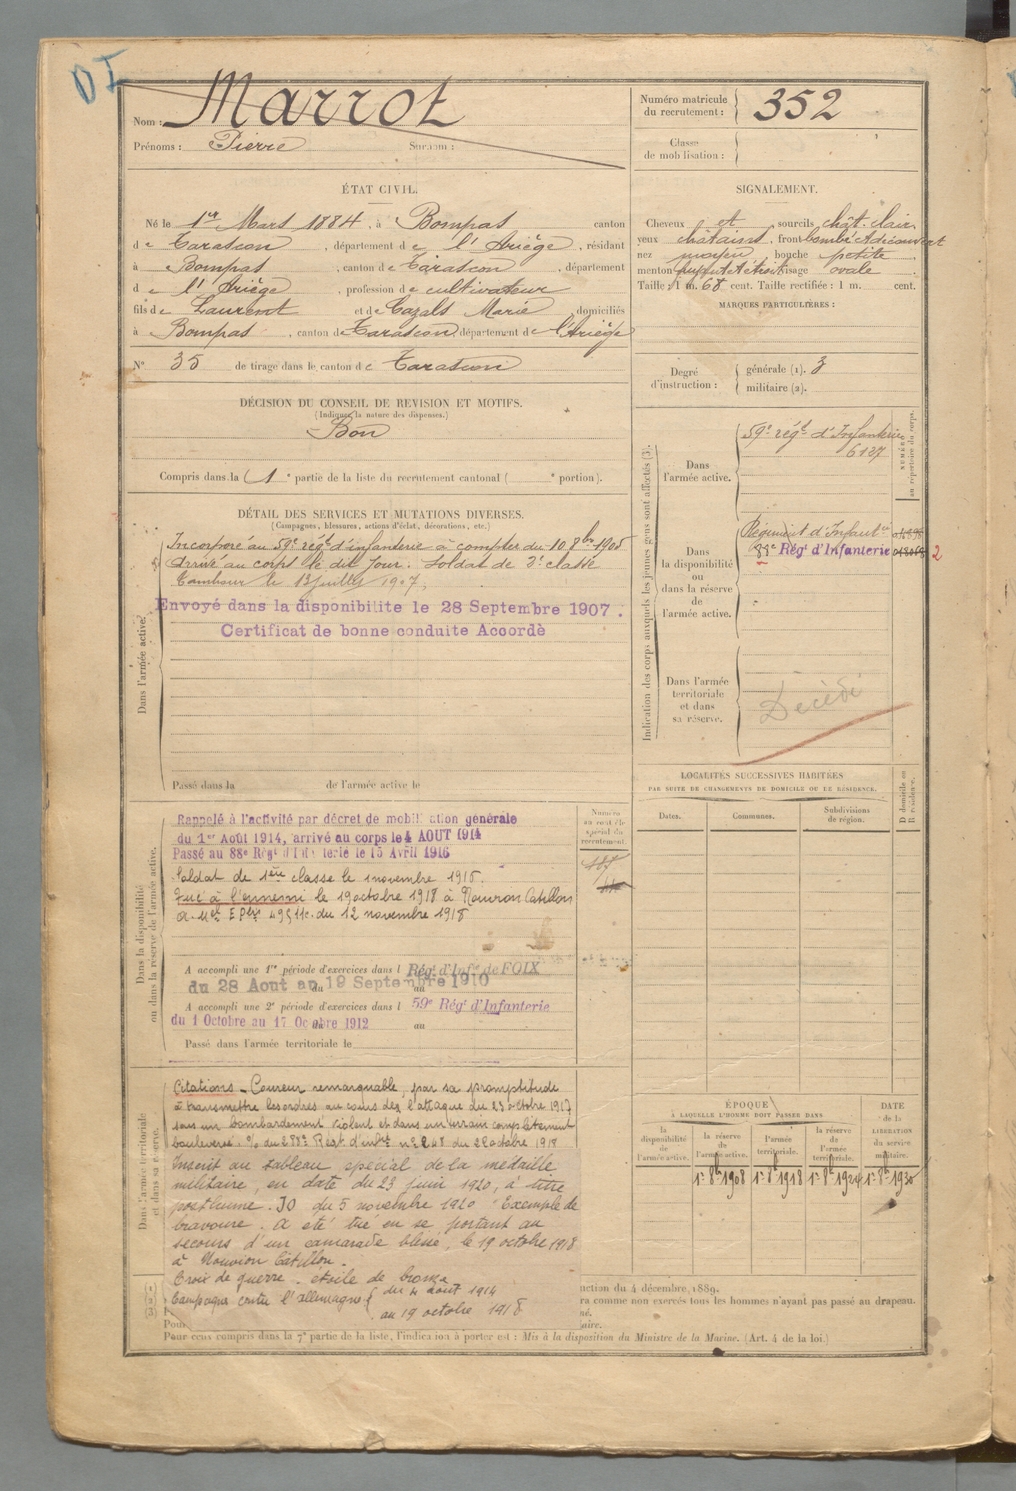 DI
Nom : Marrot
Prénoms : Pierre Surnom :
Numéro matricule du recrutement : 352
Classe de mobilisation :
ÉTAT CIVIL.
Né le 1er Mars 1884, à Bompas canton
de Tarascon, département de l'Ariège, résidant
à Bompas, canton de Tarascon, département
de l'Ariège, profession de cultivateur
fils de Laurent et de Cazals Marie domiciliés
à Bompas, canton de Tarascon, département de l'Ariège
N° 35 de tirage dans le canton de Tarascon
SIGNALEMENT.
Cheveux et sourcils chât. clair
yeux châtains, front bombé et découvert
nez moyen bouche petite
menton visage ovale
Taille : 1 m. 68 cent. Taille rectifiée : 1 m. cent.
MARQUES PARTICULIÈRES :
Degré d'instruction :
générale (1). 3
militaire (2).
DÉCISION DU CONSEIL DE REVISION ET MOTIFS.
(Indiquer la nature des dispenses.)
Bon
Compris dans la 1e partie de la liste du recrutement cantonal ( e portion).
DÉTAIL DES SERVICES ET MUTATIONS DIVERSES.
(Campagnes, blessures, actions d'éclat, décorations, etc.)
Dans l'armée active.
Incorporé au 59e régt d'infanterie à compter du 10 8bre 1905
Arrivé au corps le dit jour. Soldat de 2e classe
Tambour le 13 juillet 1907.
Envoyé dans la disponibilite le 28 Septembre 1907.
Certificat de bonne conduite Accordè
Passé dans la de l'armée active le
Indication des corps auxquels les jeunes gens sont affectés (3).
NUMÉRO au répertoire du corps.
Dans l'armée active.
59e régt d'Infanterie
6127
Dans la disponibilité ou dans la réserve de l'armée active.
Régiment d'Infantie
88e Régt d'Infanterie
2
Dans l'armée territoriale et dans sa réserve.
Décédé
LOCALITÉS SUCCESSIVES HABITÉES
PAR SUITE DE CHANGEMENTS DE DOMICILE OU DE RÉSIDENCE.
Dates. Communes. Subdivisions de région. D domicile ou R résidence.
Dans la disponibilité ou dans la réserve de l'armée active.
Numéro au contrôle spécial du recrutement.
Rappelé à l'activité par décret de mobilisation générale
du 1er Août 1914, arrivé au corps le 4 AOUT 1914
Passé au 88e Régt d'Infanterie le 15 Avril 1916
Soldat de 1ère classe le 1 novembre 1916.
Tué à l'ennemi le 19 octobre 1918 à Nouvion Catillon
du 12 novembre 1918
A accompli une 1re période d'exercices dans l Régt d'Infie de FOIX
du 28 Aout au 19 Septembre 1910
A accompli une 2e période d'exercices dans l 59e Régt d'Infanterie
du 1 Octobre au 17 Octobre 1912 au
Passé dans l'armée territoriale le
Dans l'armée territoriale et dans sa réserve.
Citations - Coureur remarquable, par sa promptitude
à transmettre les ordres au cours de l'attaque du 23 octobre 1917
sous un bombardement violent et dans un terrain complètement
bouleversé. O/ du 288e Régt d'infie n° 248 du 2 octobre 1918
Inscrit au tableau spécial de la médaille
militaire, en date du 23 juin 1920, à titre
posthume. JO du 5 novembre 1920 "Exemple de
bravoure. A été tué en se portant au
secours d'un camarade blessé, le 19 octobre 1918
à Nouvion Catillon.
Croix de guerre. étoile de bronze
Campagne contre l'allemagne { du 4 août 1914
au 19 octobre 1918
ÉPOQUE
À LAQUELLE L'HOMME DOIT PASSER DANS
la disponibilité de l'armée active. la réserve de l'armée active. l'armée territoriale. la réserve de l'armée territoriale.
DATE de la LIBÉRATION du service militaire.
1er 8b 1908 1er 8b 1918 1er 8b 1924 1er 8b 1930
(1) (2) (3)
uction du 4 décembre 1889.
ra comme non exercés tous les hommes n'ayant pas passé au drapeau.
né.
aire.
Pour
Pour ceux compris dans la 7e partie de la liste, l'indication à porter est : Mis à la disposition du Ministre de la Marine. (Art. 4 de la loi.)